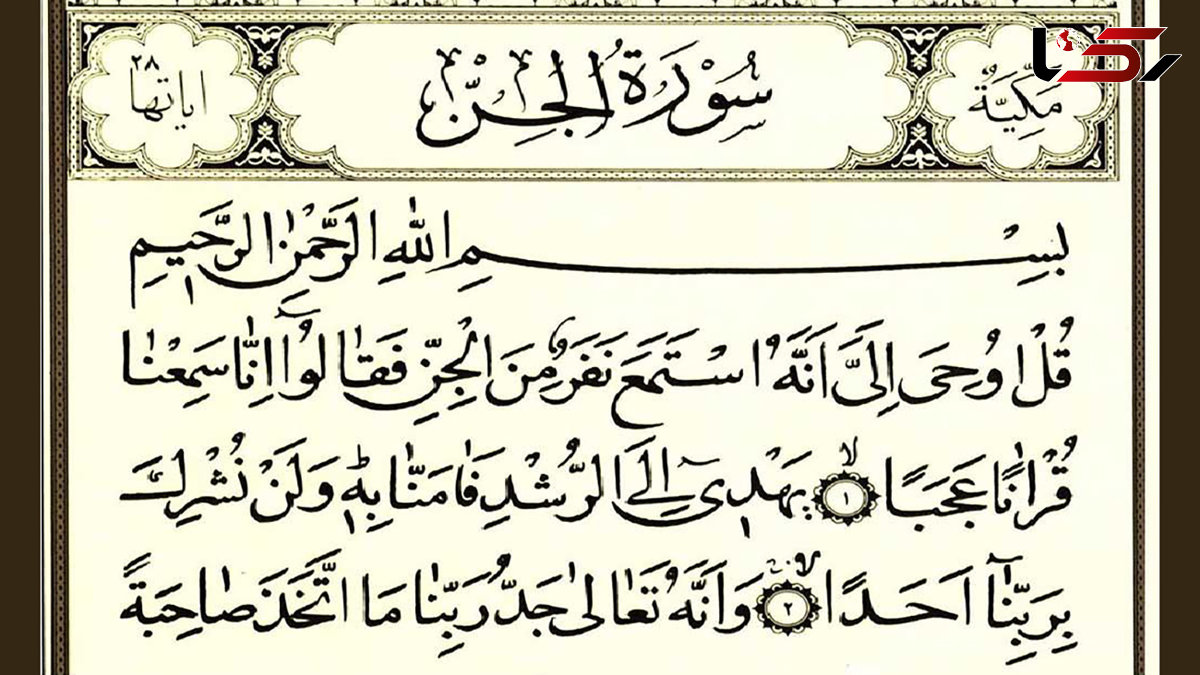 رکنا
مَكِّيَّةٌ سُوْرَةُ الْجِنِّ اياتها ٢٨
بِسْمِ اللّٰهِ الرَّحْمٰنِ الرَّحِيمِ
قُلْ اُوحِىَ اِلَىَّ اَنَّهُ اسْتَمَعَ نَفَرٌ مِنَ الْجِنِّ فَقَالُوا اِنَّا سَمِعْنَا
قُرْاٰنًا عَجَبًا ﴿١﴾ يَهْدِى اِلَى الرُّشْدِ فَاٰمَنَّا بِهٖ وَلَنْ نُشْرِكَ
بِرَبِّنَا اَحَدًا ﴿٢﴾ وَاَنَّهُ تَعَالٰى جَدُّ رَبِّنَا مَا اتَّخَذَ صَاحِبَةً